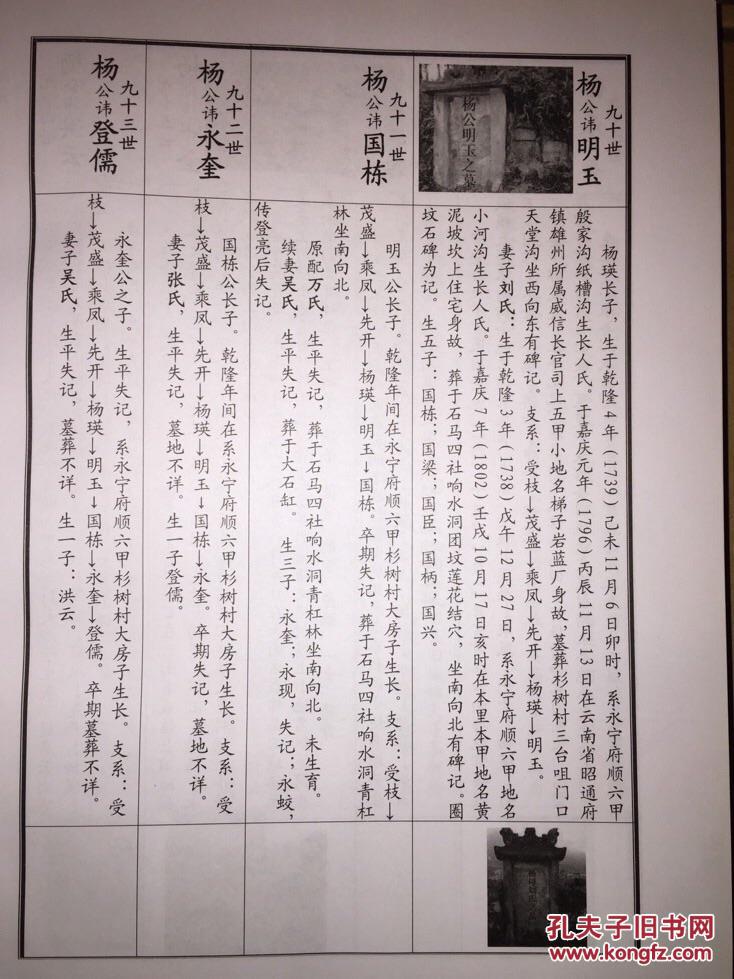 九十世
杨公讳明玉
杨公明玉之墓
杨瑛长子，生于乾隆4年（1739）己未11月6日卯时，系永宁府顺六甲
殷家沟纸槽沟生长人氏。于嘉庆元年（1796）丙辰11月13日在云南省昭通府
镇雄州所属威信长官司上五甲小地名梯子岩蓝厂身故，墓葬杉树村三台咀门口
天堂沟坐西向东有碑记。支系：受枝→茂盛→乘凤→先开→杨瑛→明玉。
妻子刘氏：生于乾隆3年（1738）戊午12月27日，系永宁府顺六甲地名
小河沟生长人氏。于嘉庆7年（1802）壬戌10月17日亥时在本里本甲地名黄
泥坡坎上住宅身故，葬于石马四社响水洞团坟莲花结穴，坐南向北有碑记。圈
坟石碑为记。生五子：国栋；国梁；国臣；国柄；国兴。
九十一世
杨公讳国栋
明玉公长子。乾隆年间在永宁府顺六甲杉树村大房子生长。支系：受枝→
茂盛→乘凤→先开→杨瑛→明玉→国栋。卒期失记，葬于石马四社响水洞青杠
林坐南向北。
原配万氏，生平失记，葬于石马四社响水洞青杠林坐南向北。未生育。
续妻吴氏，生平失记，葬于大石缸。生三子：永奎；永现，失记；永蛟，
传登亮后失记。
九十二世
杨公讳永奎
国栋公长子。乾隆年间在系永宁府顺六甲杉树村大房子生长。支系：受
枝→茂盛→乘凤→先开→杨瑛→明玉→国栋→永奎。卒期失记，墓地不详。
妻子张氏，生平失记，墓地不详。生一子登儒。
九十三世
杨公讳登儒
永奎公之子。生平失记，系永宁府顺六甲杉树村大房子生长。支系：受
枝→茂盛→乘凤→先开→杨瑛→明玉→国栋→永奎→登儒。卒期墓葬不详。
妻子吴氏，生平失记，墓葬不详。生一子：洪云。
孔夫子旧书网
www.kongfz.com